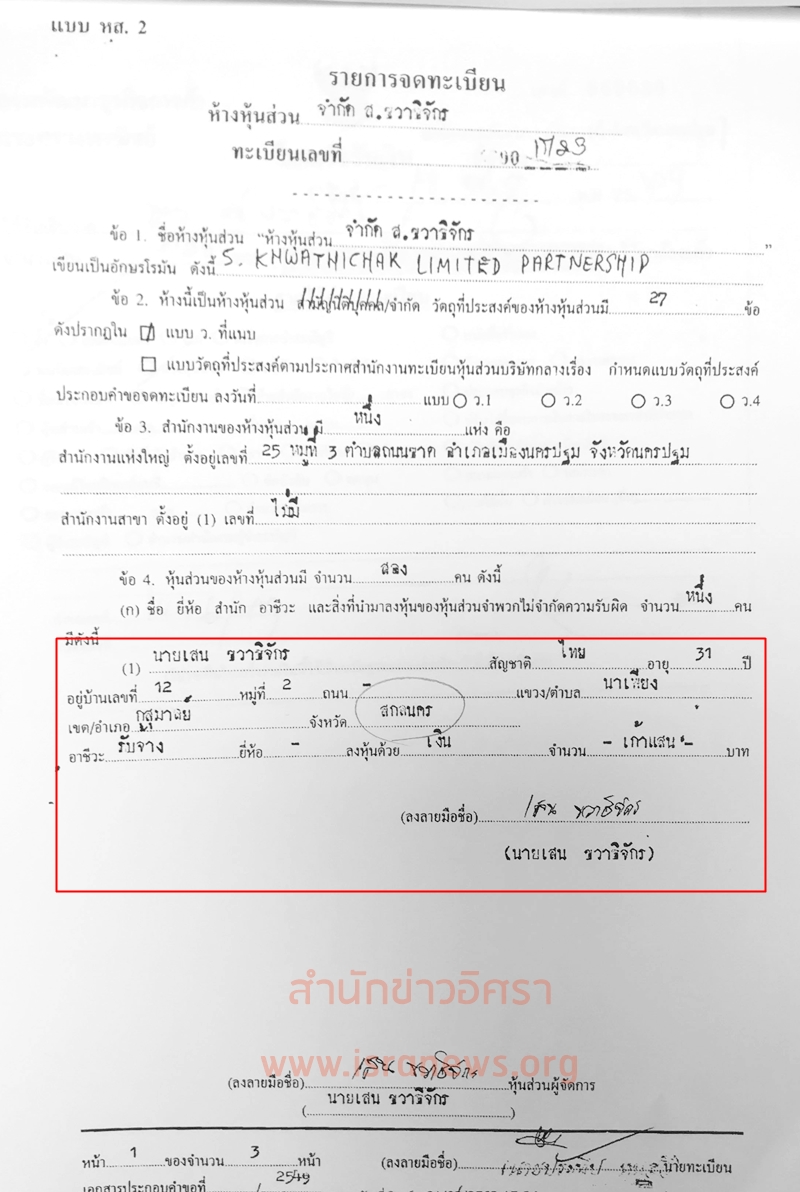 แบบ หส. 2
รายการจดทะเบียน
ห้างหุ้นส่วน จำกัด ส.ขวาธิจักร
ทะเบียนเลขที่
ข้อ 1. ชื่อห้างหุ้นส่วน "ห้างหุ้นส่วน จำกัด ส.ขวาธิจักร "
เขียนเป็นอักษรโรมัน ดังนี้ S. KHWATHICHAK LIMITED PARTNERSHIP
ข้อ 2. ห้างนี้เป็นห้างหุ้นส่วน สามัญนิติบุคคล/จำกัด วัตถุที่ประสงค์ของห้างหุ้นส่วนมี 27 ข้อ
ดังปรากฏใน แบบ ว. ที่แนบ
แบบวัตถุที่ประสงค์ตามประกาศสำนักงานทะเบียนหุ้นส่วนบริษัทกลางเรื่อง กำหนดแบบวัตถุที่ประสงค์
ประกอบคำขอจดทะเบียน ลงวันที่ แบบ ว.1 ว.2 ว.3 ว.4
ข้อ 3. สำนักงานของห้างหุ้นส่วน มี หนึ่ง แห่ง คือ
สำนักงานแห่งใหญ่ ตั้งอยู่เลขที่ 25 หมู่ที่ 3 ตำบลถนนขาด อำเภอเมืองนครปฐม จังหวัดนครปฐม
สำนักงานสาขา ตั้งอยู่ (1) เลขที่ ไม่มี
ข้อ 4. หุ้นส่วนของห้างหุ้นส่วนมี จำนวน สอง คน ดังนี้
(ก) ชื่อ ยี่ห้อ สำนัก อาชีวะ และสิ่งที่นำมาลงหุ้นของหุ้นส่วนจำพวกไม่จำกัดความรับผิด จำนวน หนึ่ง คน
มีดังนี้
(1) นายเสน ขวาธิจักร สัญชาติ ไทย อายุ 31 ปี
อยู่บ้านเลขที่ 12 หมู่ที่ 2 ถนน - แขวง/ตำบล นาเพียง
เขต/อำเภอ กุสุมาลย์ จังหวัด สกลนคร
อาชีวะ รับจ้าง ยี่ห้อ - ลงหุ้นด้วย เงิน จำนวน - เก้าแสน - บาท
(ลงลายมือชื่อ) เสน ขวาธิจักร
(นายเสน ขวาธิจักร)
สำนักข่าวอิศรา
www.isranews.org
(ลงลายมือชื่อ) เสน ขวาธิจักร หุ้นส่วนผู้จัดการ
( นายเสน ขวาธิจักร )
หน้า 1 ของจำนวน 3 หน้า (ลงลายมือชื่อ) นายทะเบียน
เอกสารประกอบคำขอที่ / 2549